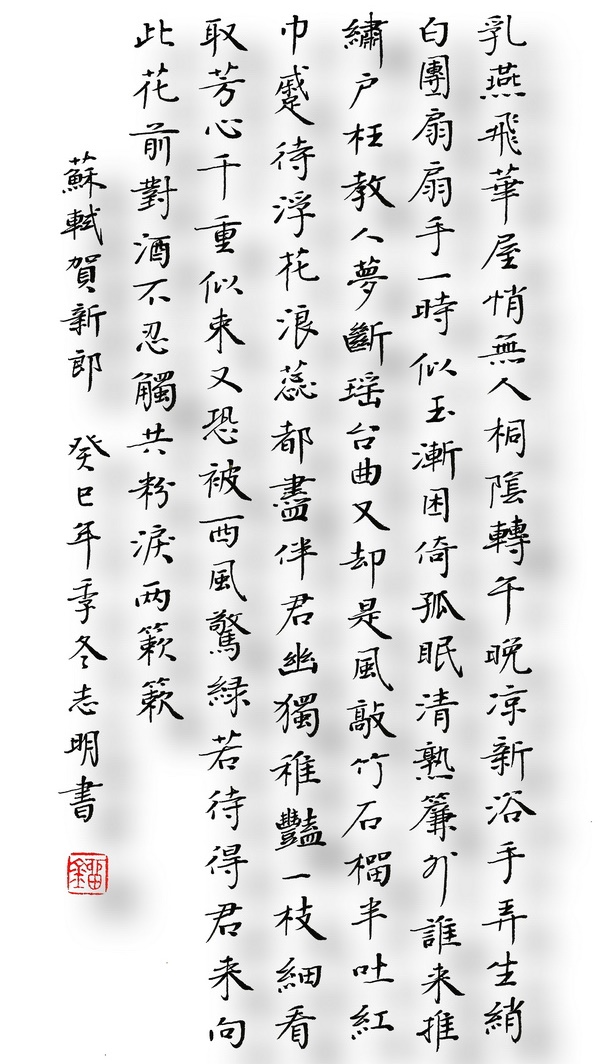 乳燕飛華屋悄無人桐陰轉午晚凉新浴手弄生綃
白團扇扇手一時似玉漸困倚孤眠清熟簾外誰来推
繡戶枉教人夢斷瑶台曲又却是風敲竹石榴半吐紅
巾蹙待浮花浪蕊都盡伴君幽獨稚豔一枝細看
取芳心千重似束又恐被西風驚綠若待得君来向
此花前對酒不忍觸共粉淚两簌簌
蘇軾賀新郎 癸巳年季冬志明書